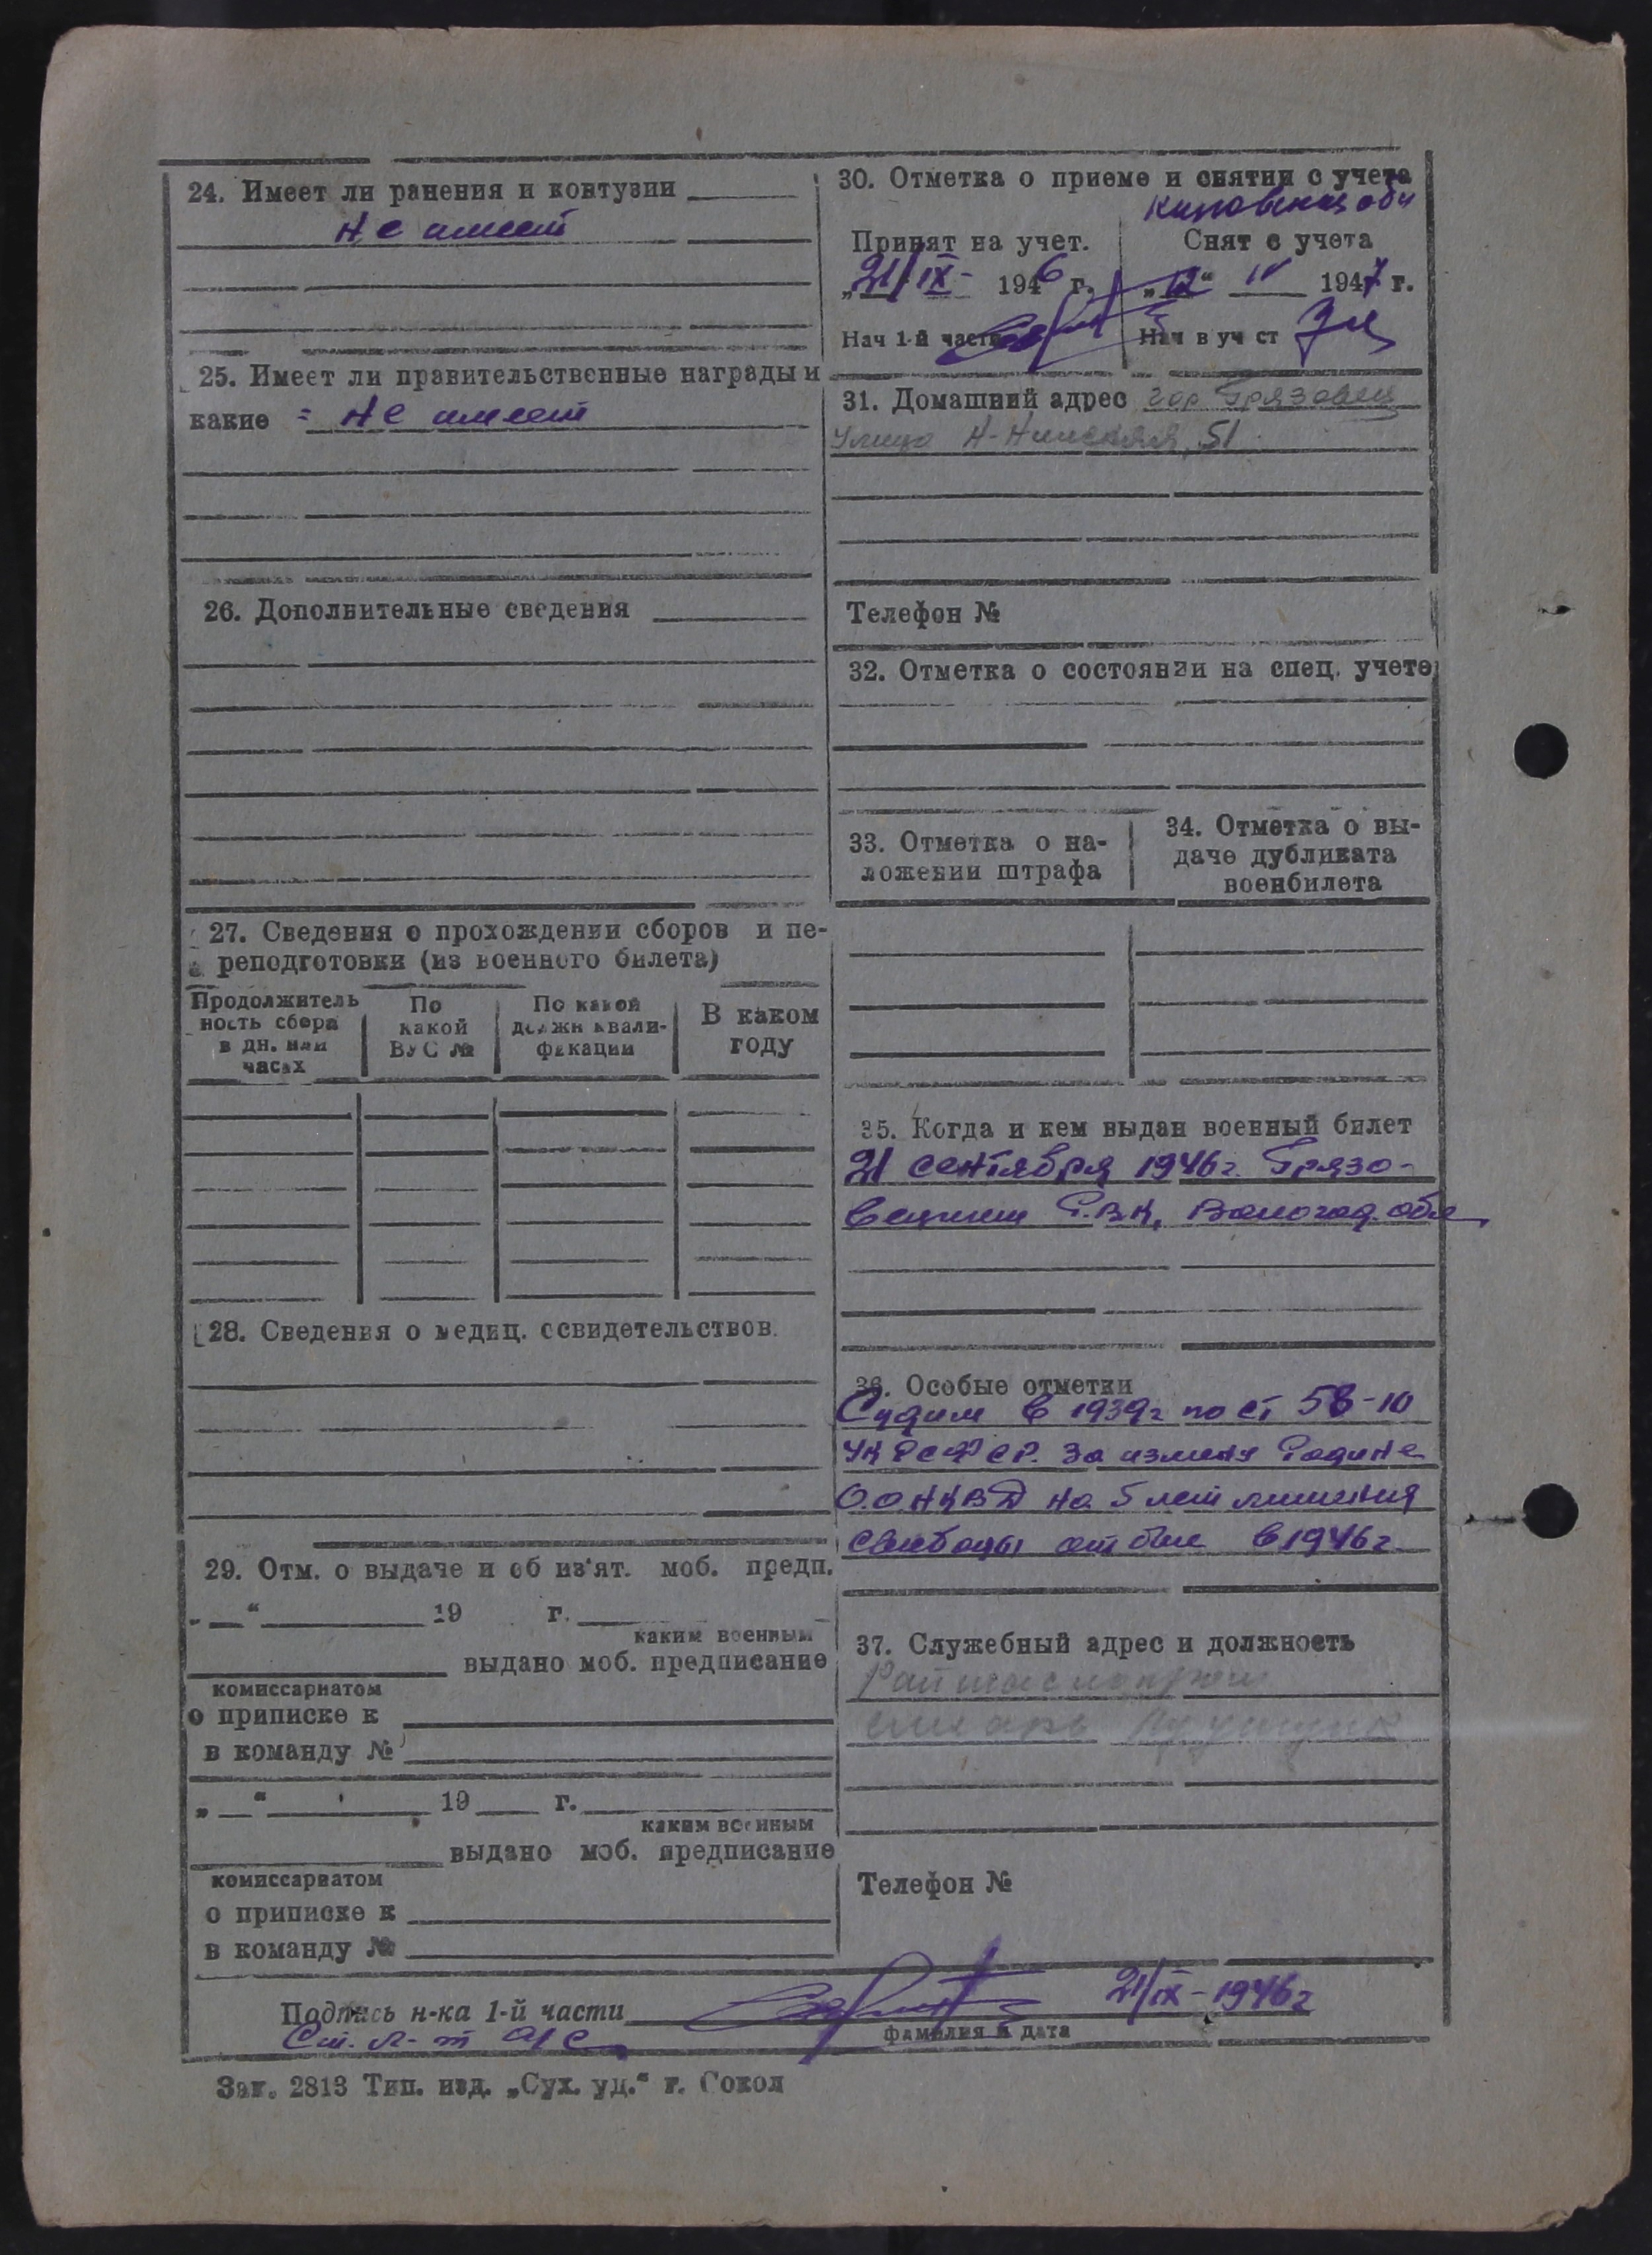 24. Имеет ли ранения и контузии
не имеет
25. Имеет ли правительственные награды и
какие = не имеет
26. Дополнительные сведения
27. Сведения о прохождении сборов и пе-
реподготовки (из военного билета)
Продолжитель
ность сбора
в дн. или
часах
По
какой
ВУС №
По какой
должн квали-
фикации
В каком
году
28. Сведения о медиц. освидетельствов.
29. Отм. о выдаче и об из'ят. моб. предп.
„ “ 19 г.
каким военным
выдано моб. предписание
комиссариатом
о приписке к
в команду №
„ “ 19 г.
каким военным
выдано моб. предписание
комиссариатом
о приписке к
в команду №
30. Отметка о приеме и снятии с учета
Принят на учет.
„21/IX- 1946 г.
Нач 1-й части
Снят с учета
IV 1947 г.
Нач в уч ст
31. Домашний адрес гор Грязовец
улица 51
Телефон №
32. Отметка о состоянии на спец. учете
33. Отметка о на-
ложении штрафа
34. Отметка о вы-
даче дубликата
военбилета
35. Когда и кем выдан военный билет
21 сентября 1946г. Грязо-
вецким Р.В.К, Вологод. обл
36. Особые отметки
Судим в 1939г по ст 58-10
УК РСФСР. За измену Родине
О.О.НКВД на 5 лет лишения
свободы отбыл в 1946г
37. Служебный адрес и должность
Телефон №
Подпись н-ка 1-й части
21/IX-1946г
Ст. л-т а/с
фамилия и дата
Зак. 2813 Тип. изд. „Сух. уд.“ г. Сокол